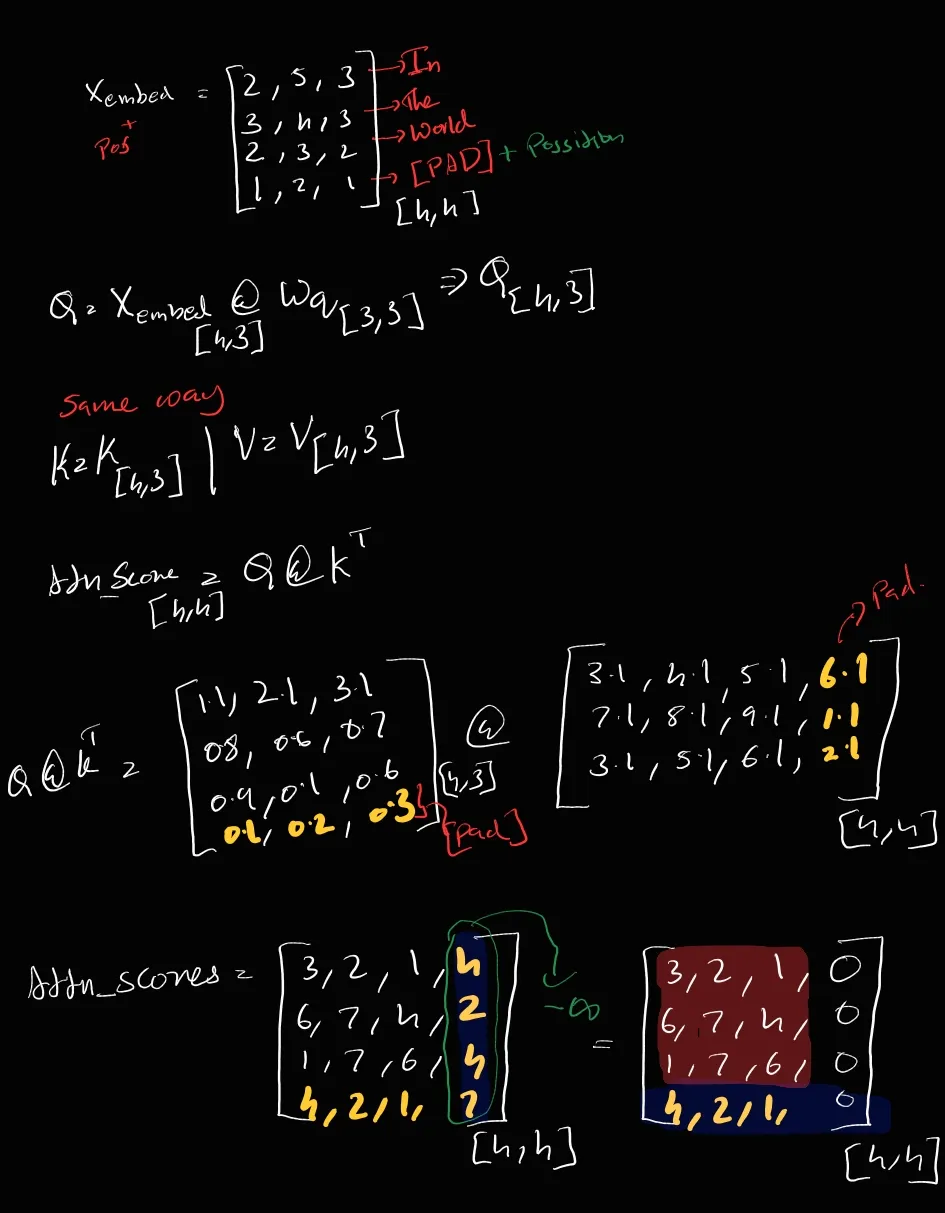 Xembed + Pos = [2, 5, 3 → In
3, 4, 3 → The
2, 3, 2 → World
1, 2, 1] → [PAD] + Possition
[4,4]
Q = Xembed [4,3] @ Wq [3,3] ⇒ Q [4,3]
Same way
K = K [4,3] | V = V [4,3]
Attn_Score [4,4] = Q @ K^T
Pad.
Q @ K^T = [1.1, 2.1, 3.1 @ [3.1, 4.1, 5.1, 6.1
0.8, 0.6, 0.7 7.1, 8.1, 9.1, 1.1
0.9, 0.1, 0.6 [4,3] 3.1, 5.1, 6.1, 2.1]
0.1, 0.2, 0.3] [pad] [4,4]
Attn_scores = [3, 2, 1, 4 → -∞ = [3, 2, 1, 0
6, 7, 4, 2 6, 7, 4, 0
1, 7, 6, 4 1, 7, 6, 0
4, 2, 1, 7] 4, 2, 1, 0]
[4,4] [4,4]